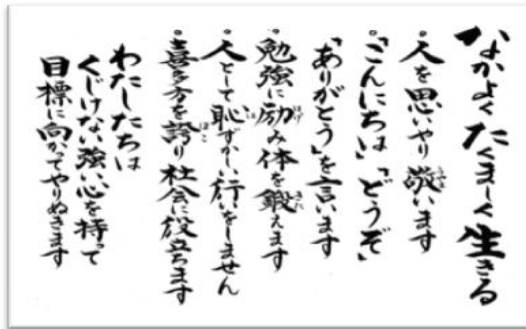 なかよくたくましく生きる
・人を思いやり敬います
・「こんにちは」「どうぞ」
「ありがとう」を言います
・勉強に励み体を鍛えます
・人として恥ずかしい行いをしません
・喜多方を誇り社会に役立ちます
わたしたちは
くじけない強い心を持って
目標に向かってやりぬきます